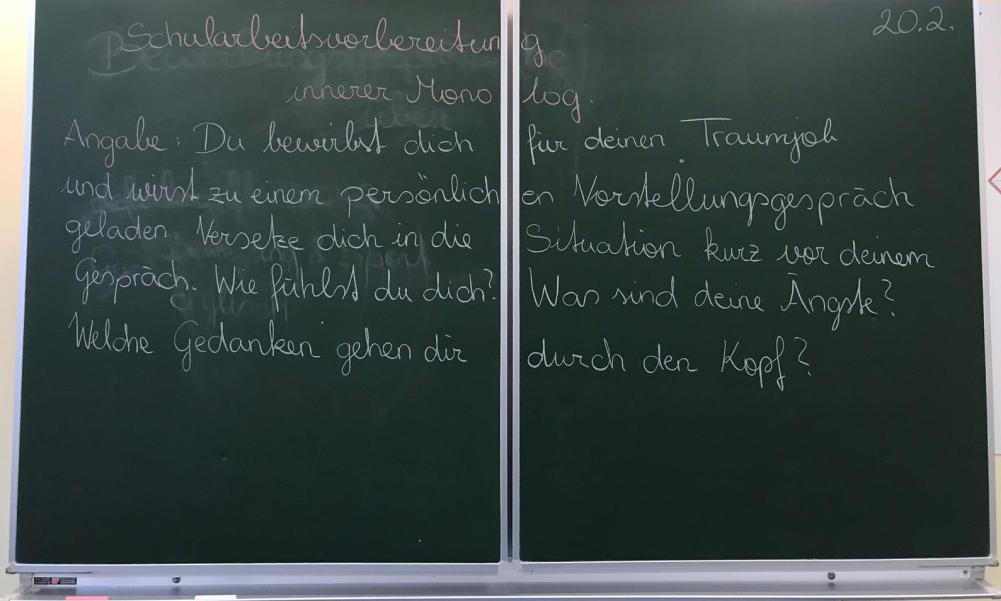 20.2.
Schularbeitsvorbereitung
innerer Monolog.
Angabe: Du bewirbst dich für deinen Traumjob
und wirst zu einem persönlichen Vorstellungsgespräch
geladen. Versetze dich in die Situation kurz vor deinem
Gespräch. Wie fühlst du dich? Was sind deine Ängste?
Welche Gedanken gehen dir durch den Kopf?